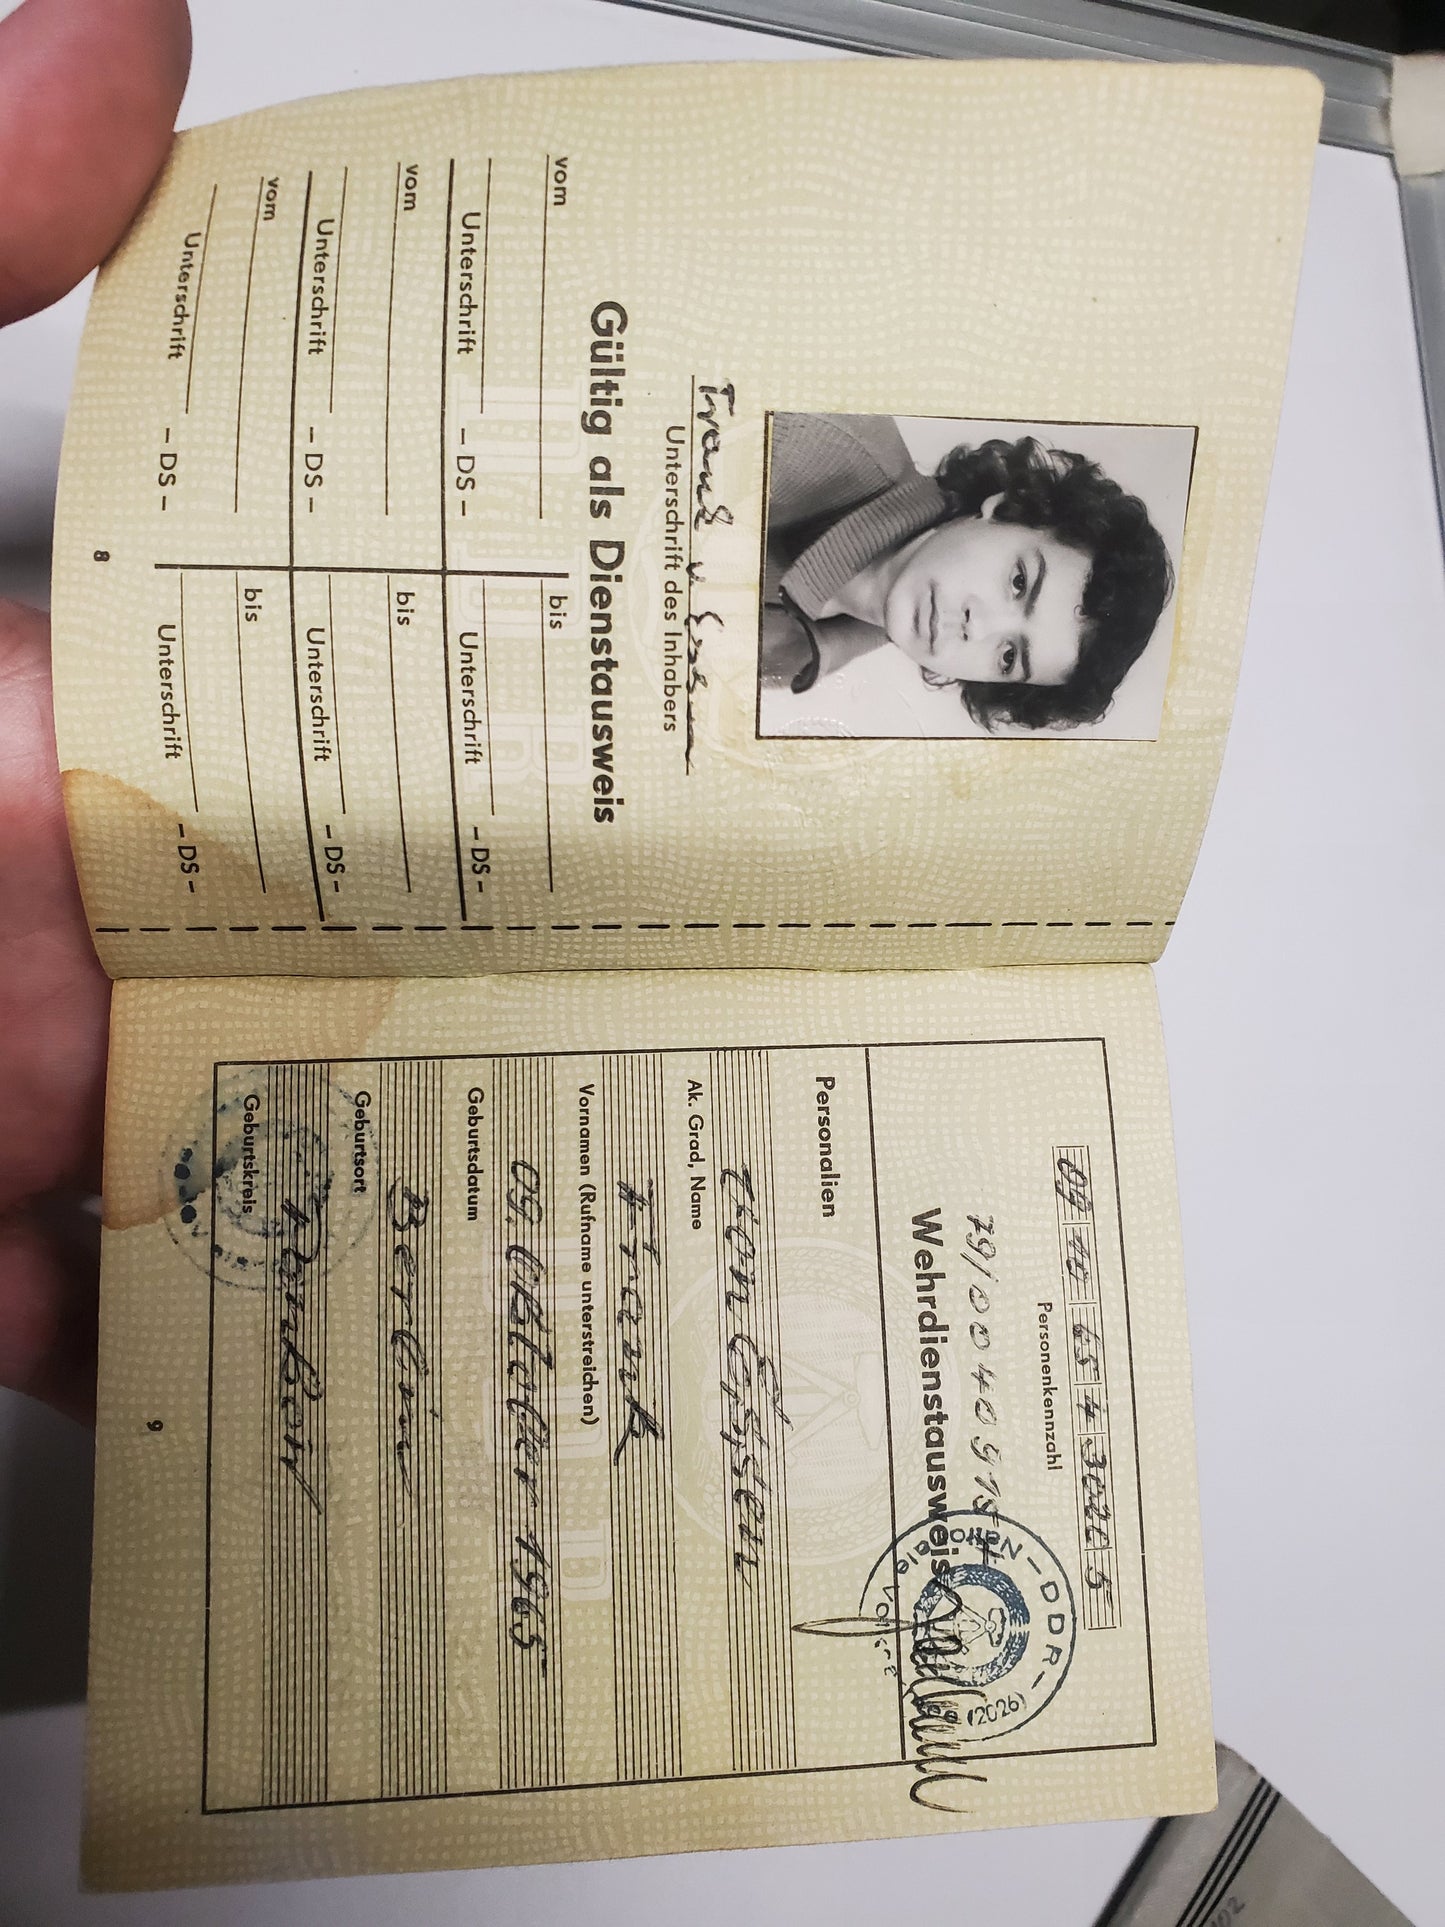 Frank v.
Unterschrift des Inhabers
Gültig als Dienstausweis
vom bis
Unterschrift – DS – Unterschrift – DS –
vom bis
Unterschrift – DS – Unterschrift – DS –
vom bis
Unterschrift – DS – Unterschrift – DS –
8
Personenkennzahl
Wehrdienstausweis
DDR – Nationale Volksarmee (2026)
Personalien
von Essen
Ak. Grad, Name
Frank
Vornamen (Rufname unterstreichen)
09. Oktober 1965
Geburtsdatum
Berlin
Geburtsort
Pankow
Geburtskreis
9